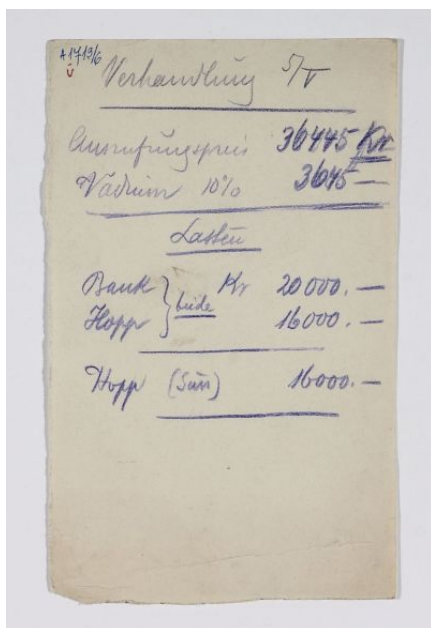 A1713/6
ü
Verhandlung 5/V
Ausrufungspreis 36445 Kr
Vadium 10% 3645 —
Lasten
Bank } beide Kr 20 000.—
Hopp } 16000.—
Hopp (Süss) 16000.—